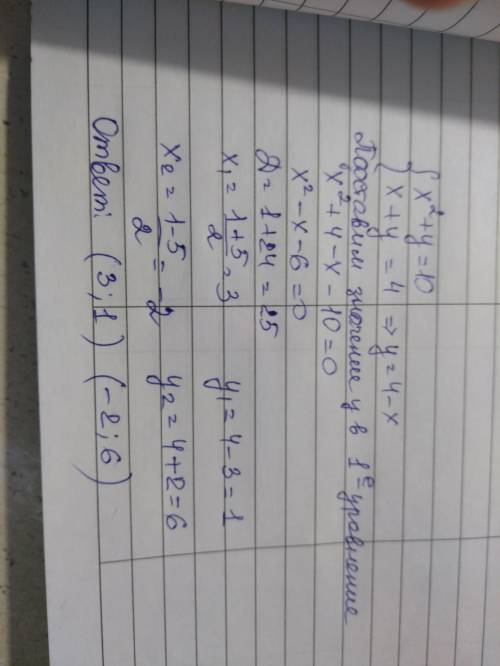 { x²+y=10
{ x+y =4 ⇒ y=4-x
Поставим значение y в 1ᵉ уравнение
x²+4-x-10=0
x²-x-6=0
D=1+24=25
x₁=(1+5)/2=3 y₁=4-3=1
x₂=(1-5)/2=-2 y₂=4+2=6
Ответ: (3;1) (-2;6)